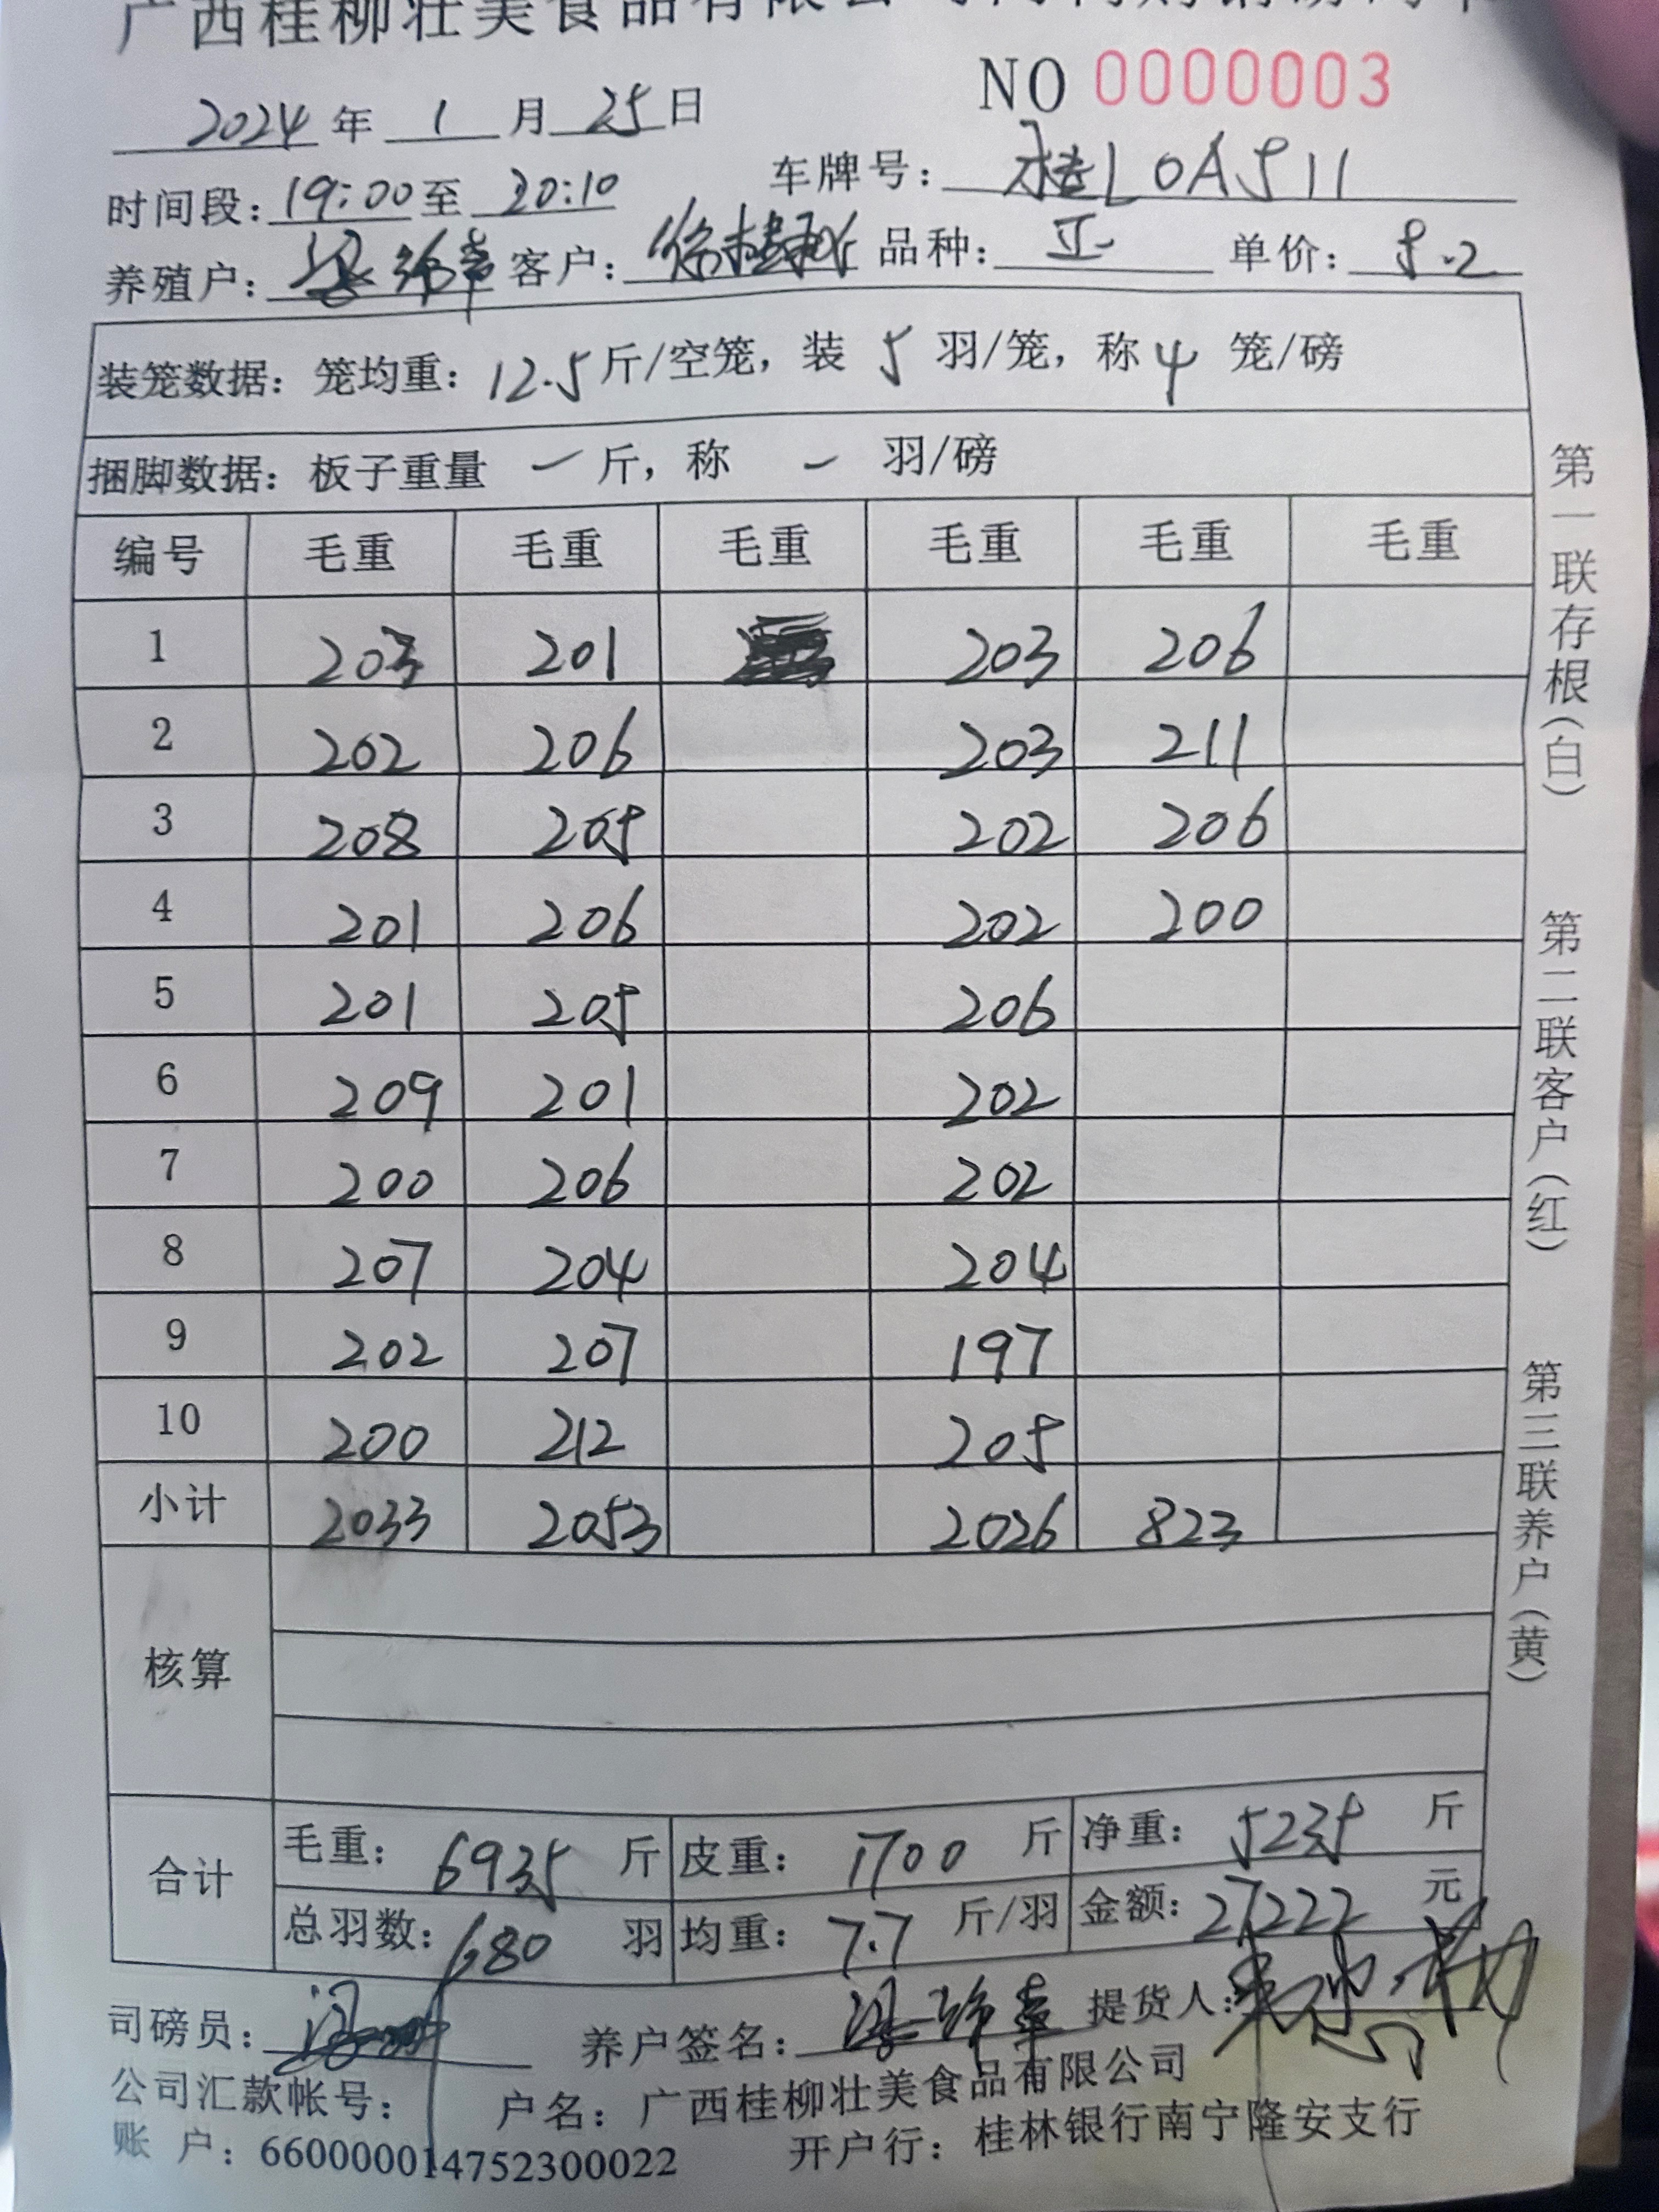 广西桂柳壮美食品有限公司
NO 0000003
2024 年 1 月 25 日
时间段: 19:00 至 20:10 车牌号: 桂L0A511
养殖户: 客户: 徐桂秋 品种: 正 单价: 5.2
装笼数据: 笼均重: 12.5 斤/空笼, 装 5 羽/笼, 称 4 笼/磅
捆脚数据: 板子重量 一 斤, 称 一 羽/磅
编号 毛重 毛重 毛重 毛重 毛重 毛重
1 203 201 203 206
2 202 206 203 211
3 208 205 202 206
4 201 206 202 200
5 201 205 206
6 209 201 202
7 200 206 202
8 207 204 204
9 202 207 197
10 200 212 205
小计 2033 2053 2026 823
核算
合计
毛重: 6935 斤 皮重: 1700 斤 净重: 5235 斤
总羽数: 680 羽 均重: 7.7 斤/羽 金额: 27222 元
司磅员: 养户签名: 提货人:
公司汇款帐号: 户名: 广西桂柳壮美食品有限公司
账 户: 660000014752300022 开户行: 桂林银行南宁隆安支行
第一联存根(白) 第二联客户(红) 第三联养户(黄)